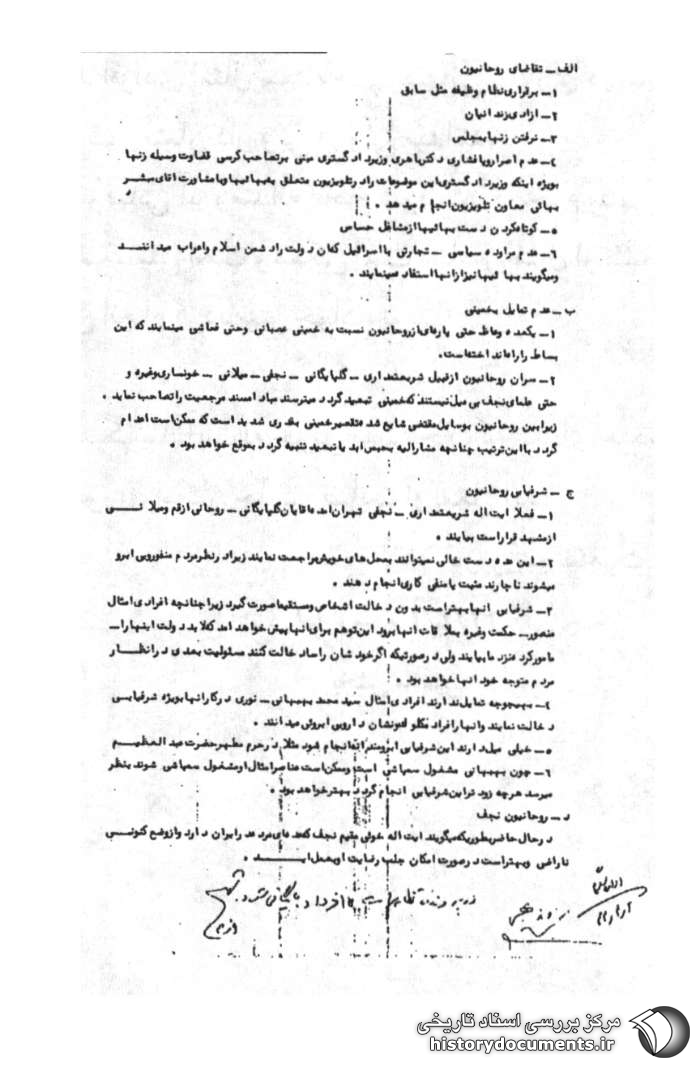 الف ـ تقاضای روحانیون
۱ـ برقراری نظام وظیفه مثل سابق
۲ـ ازادی زندانیان
۳ـ نرفتن زنها بمجلس
٤ـ عدم اصرار وپافشاری دکتر باهری وزیردادگستری مبنی برتصاحب کرسی قضاوت وسیله زنها
بویژه اینکه وزیردادگستری این موضوعات رادرتلویزیون متعلق به بهائیها وبا مشاورت اقای مبشر
بهائی معاون تلویزیون انجام میدهد .
۵ـ کوتاه کردن دست بهائیها ازمشاغل حساس
٦ـ عدم مراوده سیاسی ـ تجارتی بااسرائیل که این دولت رادشمن اسلام واعراب میدانند
ومیگویند بهائیها نیزازانها استفاده مینمایند .
ب ـ عدم تمایل بخمینی
۱ـ یکعده وعاظ حتی پاره‌ای ازروحانیون نسبت به خمینی عصبانی وحتی فحاشی مینمایند که این
بساط را راه انداخته است.
۲ـ سران روحانیون ازقبیل شریعتمداری ـ گلپایگانی ـ نجفی ـ میلانی ـ خونساری وغیره و
حتی علمای نجف بی میل نیستند که خمینی تبعید گردد میترسند مبادا مسند مرجعیت راتصاحب نماید .
زیرابین روحانیون بوسایل مقتضی شایع شده تقصیرخمینی بقدری شدید است که ممکن است اعدام
گردد بااین ترتیب چنانچه مشارالیه بحبس ابد یا تبعید تنبیه گردد بموقع خواهد بود .
ج ـ شرفیابی روحانیون
۱ـ فعلا ایت اله شریعتمداری ـ نجفی تهران امده اقایان گلپایگانی ـ روحانی ازقم ومیلانی
ازمشهد قراراست بیایند .
۲ـ این عده دست خالی نمیتوانند بمحل های خویش مراجعت نمایند زیرادرنظرمردم منفور وبی ابرو
میشوند ناچارند مثبت یا منفی کاری انجام دهند .
۳ـ شرفیابی انها بهتراست بدون دخالت اشخاص ومستقیما صورت گیرد زیرا چنانچه افرادی امثال
منصور ـ حکمت وغیره بملاقات انها برود این توهم برای انها پیش خواهد امد که لابد دولت اینهارا ـ
مامورکرده نزد ما بیایند ولی درصورتیکه اگرخودشان رامداخالت کنند مسئولیت بعدی درانظار
مردم متوجه خود انها خواهد بود .
٤ـ بهیچوجه تمایل ندارند افرادی امثال سید محمد بهبهانی ـ نوری درکارانها بویژه شرفیابی
دخالت نمایند وانها را افراد هتاک وخودشان دارویی ابروش میدانند .
۵ـ خیلی میل دارند این شرفیابی ابرومندانه انجام شود مثلا درحرم مطهرحضرت عبدالعظیم
٦ـ چون بهبهانی مشغول سمپاشی است وممکن است عناصرامثال اومشغول سمپاشی شوند بنظر
میرسد هرچه زودتراین شرفیابی انجام گردد بهترخواهد بود .
د ـ روحانیون نجف
درحال حاضربطوریکه میگویند ایت اله خوئی مقیم نجف که عده‌ای مریدهم درایران دارد وازوضع کنونی
ناراضی وبهتراست درصورت امکان جلب رضایت اوبعمل اید .
مرکز بررسی اسناد تاریخی
historydocuments.ir